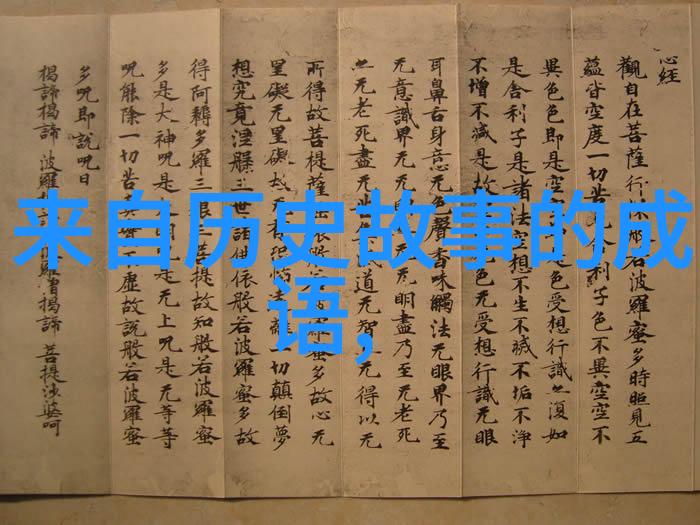 来自历史故事的成
语,
心経
觀自在菩薩行深般若波羅蜜多時照見五
蘊皆空度一切苦舍利子色不異空空不
異色色即是空是色受想行識亦復如
是舍利子是諸法空想不生不滅不垢不浄
不增不減是故色无受想行識无眼
耳鼻舌身意无色聲香味觸法无眼界乃至
无意識界无无明盡乃至无老死
亦无老死盡无道无智无得以无
所得故菩提薩依般羅蜜多故心无
罣礙无罣礙故无有恐怖一切顛倒夢
想究竟涅槃三世諸佛依般若波羅蜜多故
得阿耨多羅三藐三菩提故知般若波羅蜜
多是大神呪是大明呪是无上呪是无等等
呪能除一切苦真實不虚故說般若波羅蜜
多呪即說呪曰
揭諦揭諦 波羅 波羅僧揭諦 菩提沙婆呵